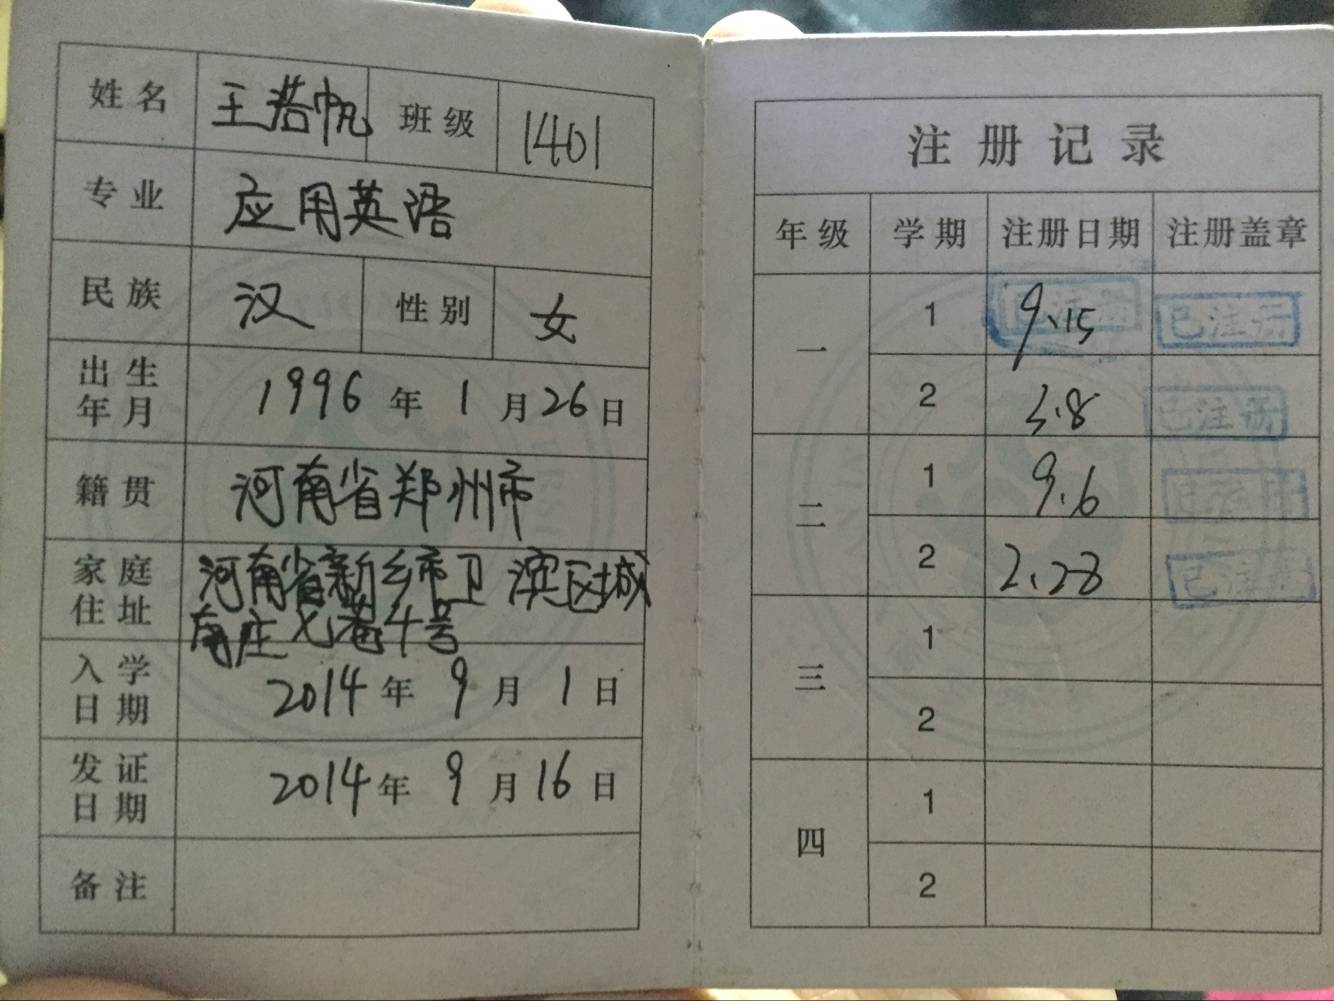 姓名 王若帆 班级 1401
专业 应用英语
民族 汉 性别 女
出生
年月 1996年1月26日
籍贯 河南省郑州市
家庭 河南省新乡市卫滨区城
住址 南庄七巷4号
入学
日期 2014年9月1日
发证
日期 2014年9月16日
备注
注册记录
年级 学期 注册日期 注册盖章
一 1 已注册 9、15 已注册
2 3.8 已注册
二 1 9.6 已注册
2 2、28 已注册
三 1
2
四 1
2